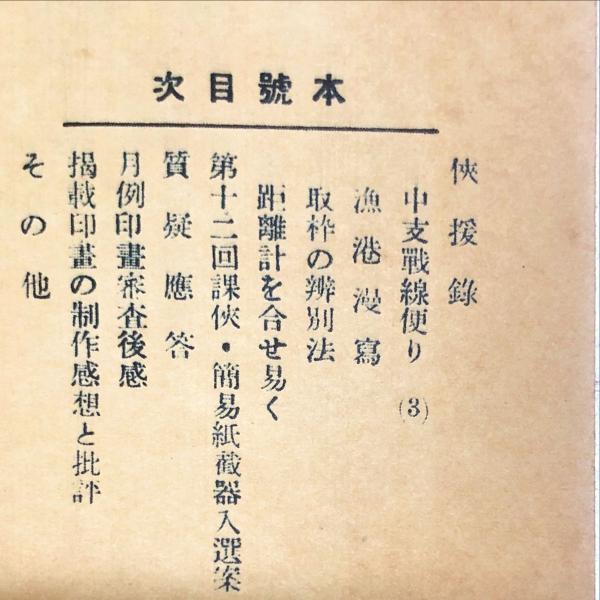 本號目次
俠援錄
中支戰線便り (3)
漁港漫寫
取枠の辨別法
距離計を合せ易く
第十二回課俠・簡易紙截器入選案
質疑應答
月例印畫審査後感
揭載印畫の制作感想と批評
その他